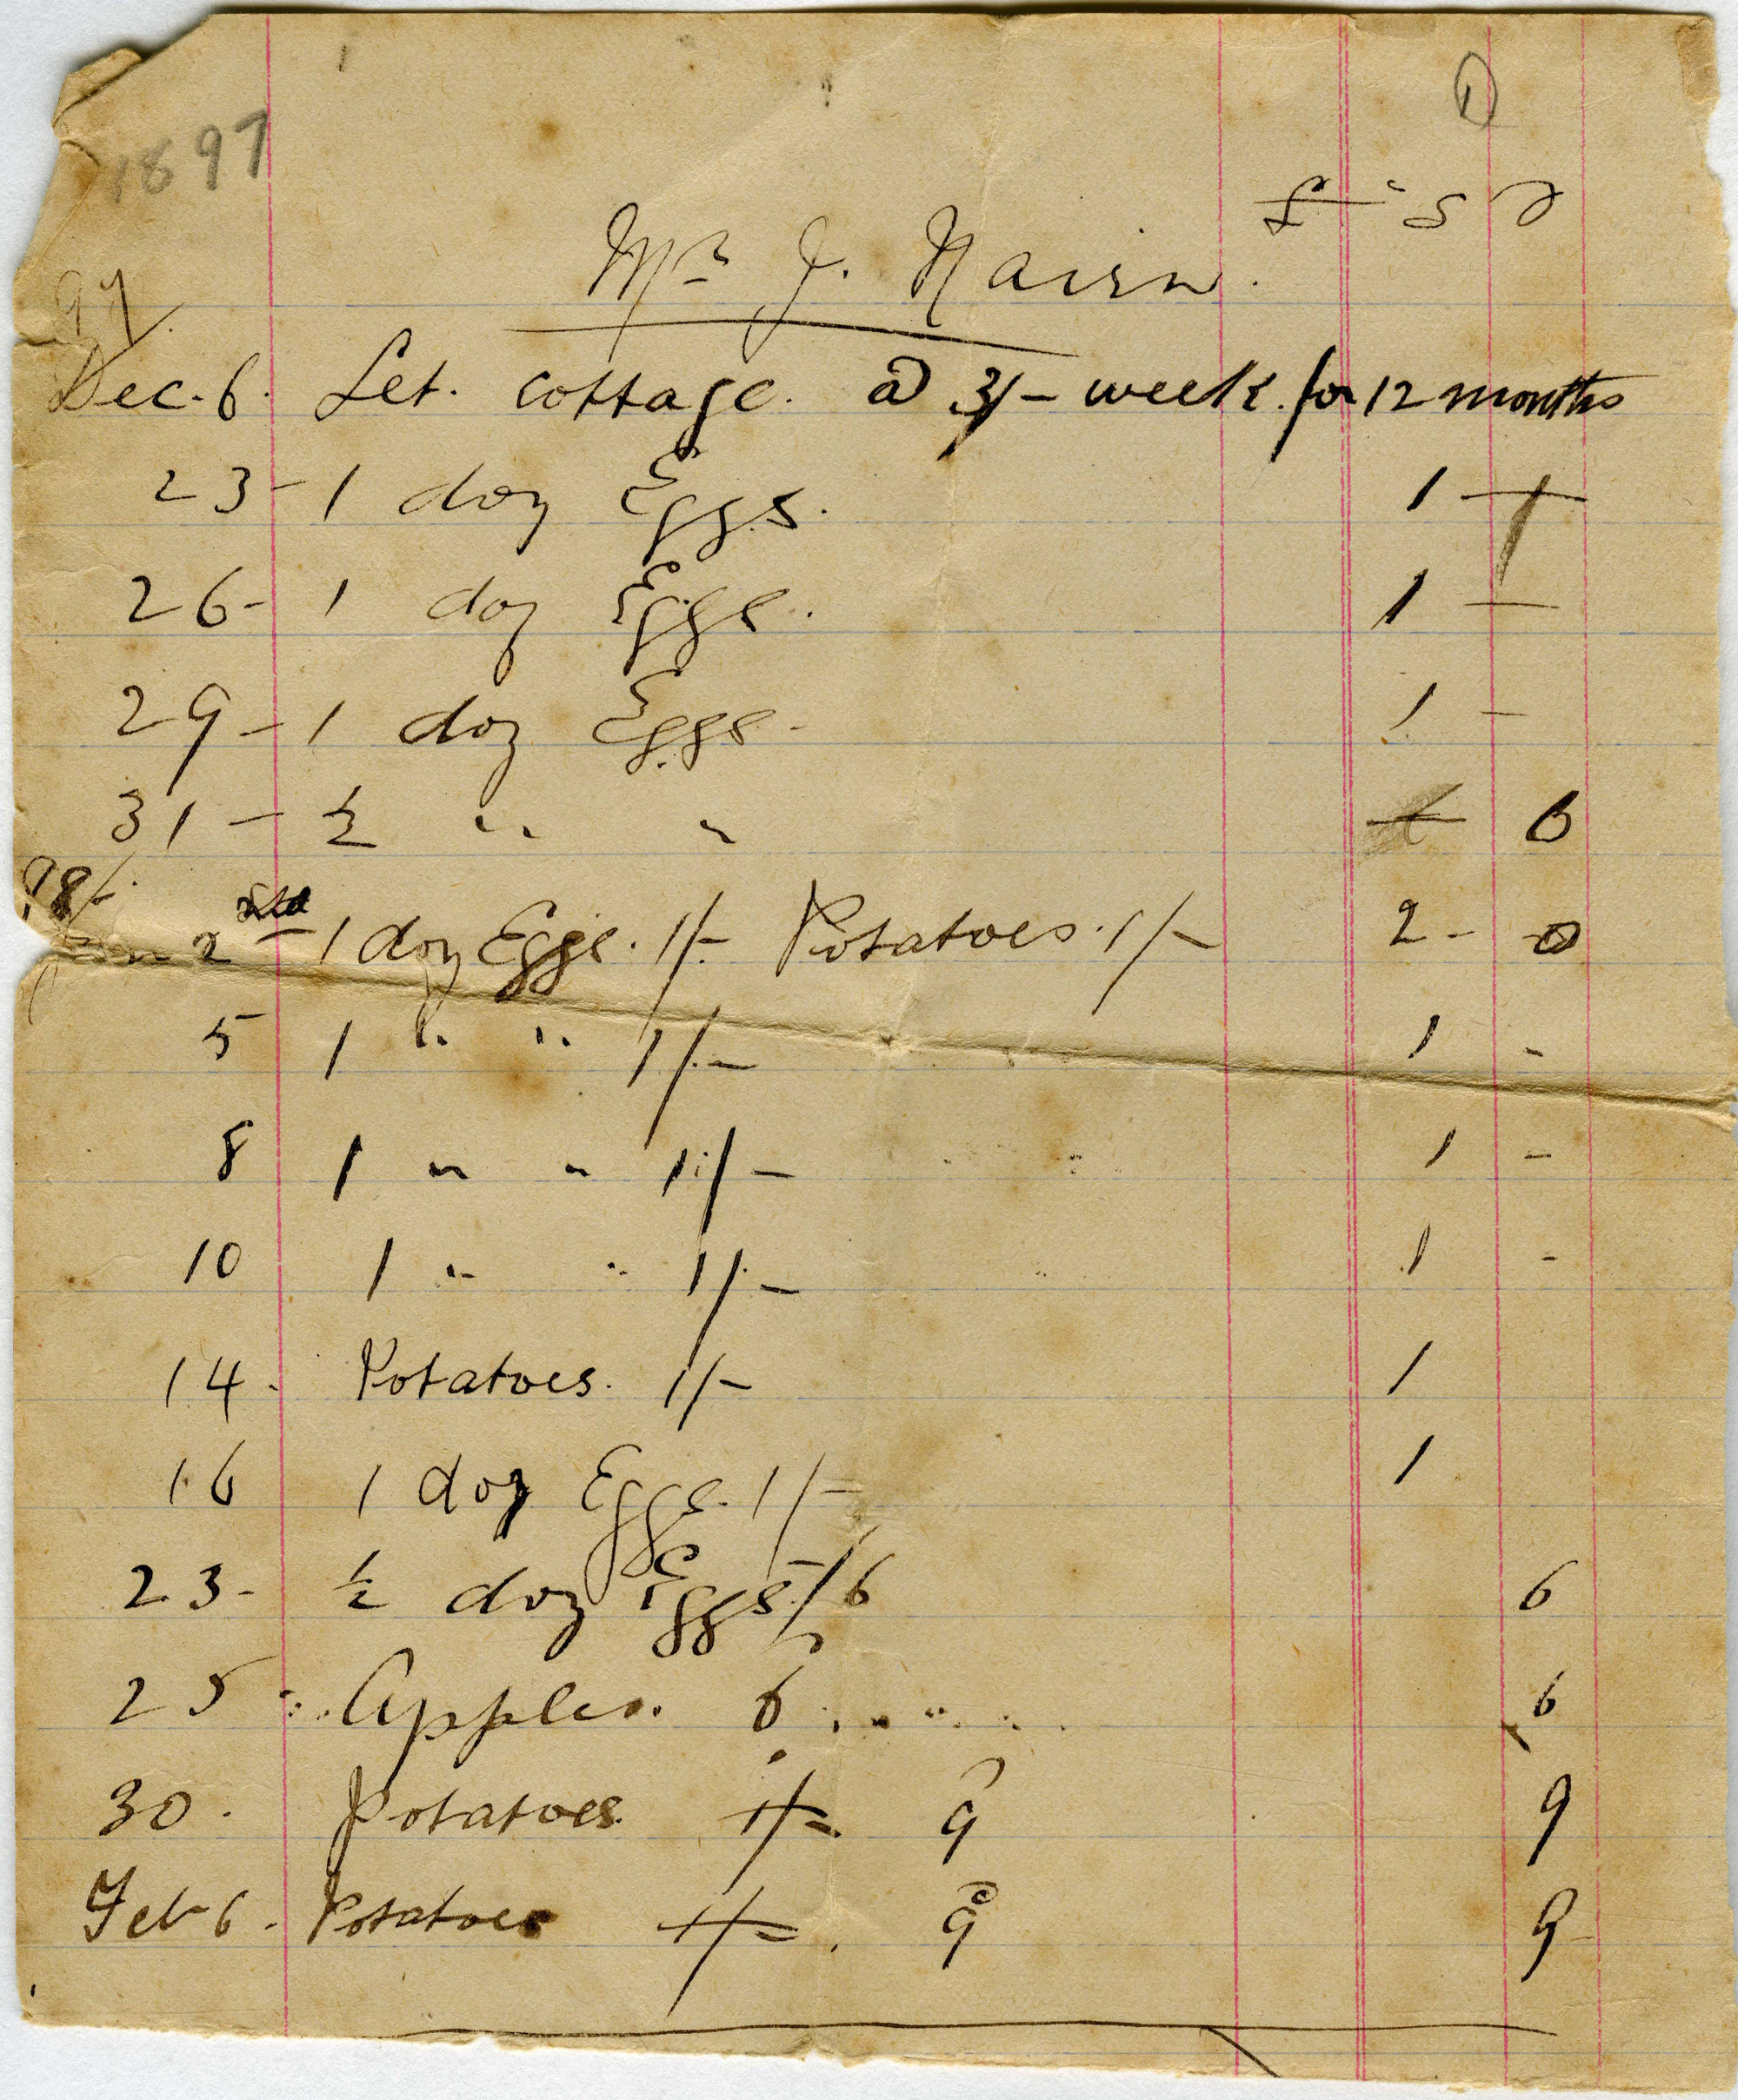 1
1897
£ S D
Mr J. Nairn.
97/.
Dec. 6. Let. cottage. @ 3/- week. for 12 months
23- 1 doz Eggs. 1 -
26- 1 doz Eggs. 1 -
29- 1 doz Eggs- 1 -
31- ½ " " 6
98/.
2 1 doz Eggs. 1/- Potatoes. 1/- 2- 0
5 1 " " 1/- 1 -
8 1 " " 1/- 1 -
10 1 " " 1/- 1 -
14. Potatoes. 1/- 1
16 1 doz Eggs. 1/- 1
23- ½ doz Eggs -/6 6
25 Apples. 6 6
30. Potatoes. 1/- 9 9
Feb 6. Potatoes 1/- 9 9